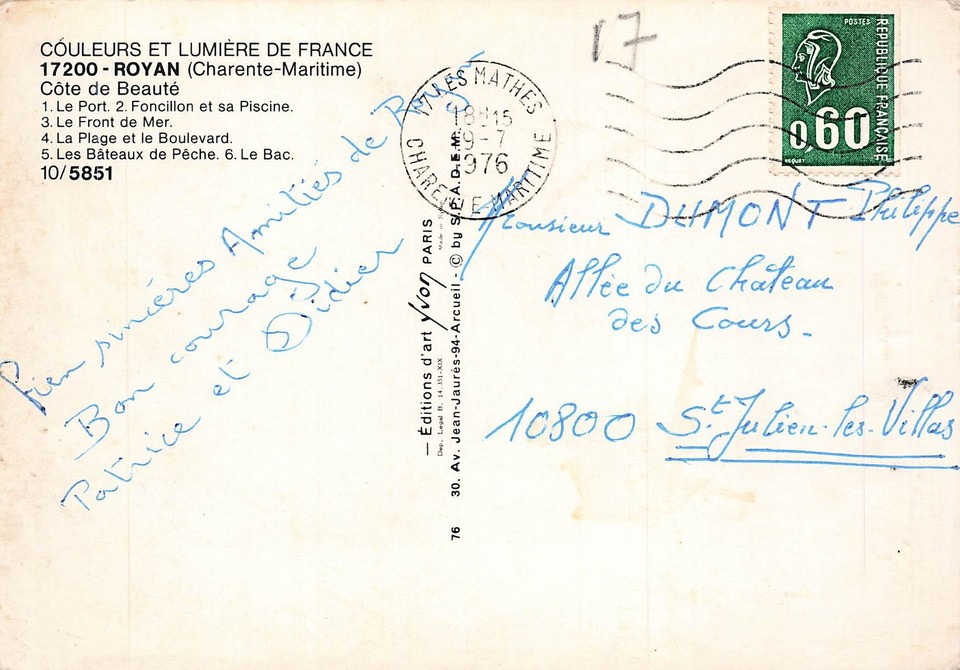 COULEURS ET LUMIÈRE DE FRANCE
17200 - ROYAN (Charente-Maritime)
Côte de Beauté
1. Le Port. 2. Foncillon et sa Piscine.
3. Le Front de Mer.
4. La Plage et le Boulevard.
5. Les Bâteaux de Pêche. 6. Le Bac.
10/5851
Bien sincères Amitiés de Royan
Bon courage
Patrice et Didier
— Éditions d'art yvon PARIS
Dep. Legal B. 14.351-XIX
Made in
76 30. Av. Jean-Jaurès-94-Arcueil - © by S.P.A.D.E.M.
17 LES MATHES
18H15
9-7
1976
CHARENTE MARITIME
17
POSTES
REPUBLIQUE FRANÇAISE
0,60
BEQUET
Monsieur DUMONT Philippe
Allée du Château
des Cours-
10800 St Julien-les-Villas